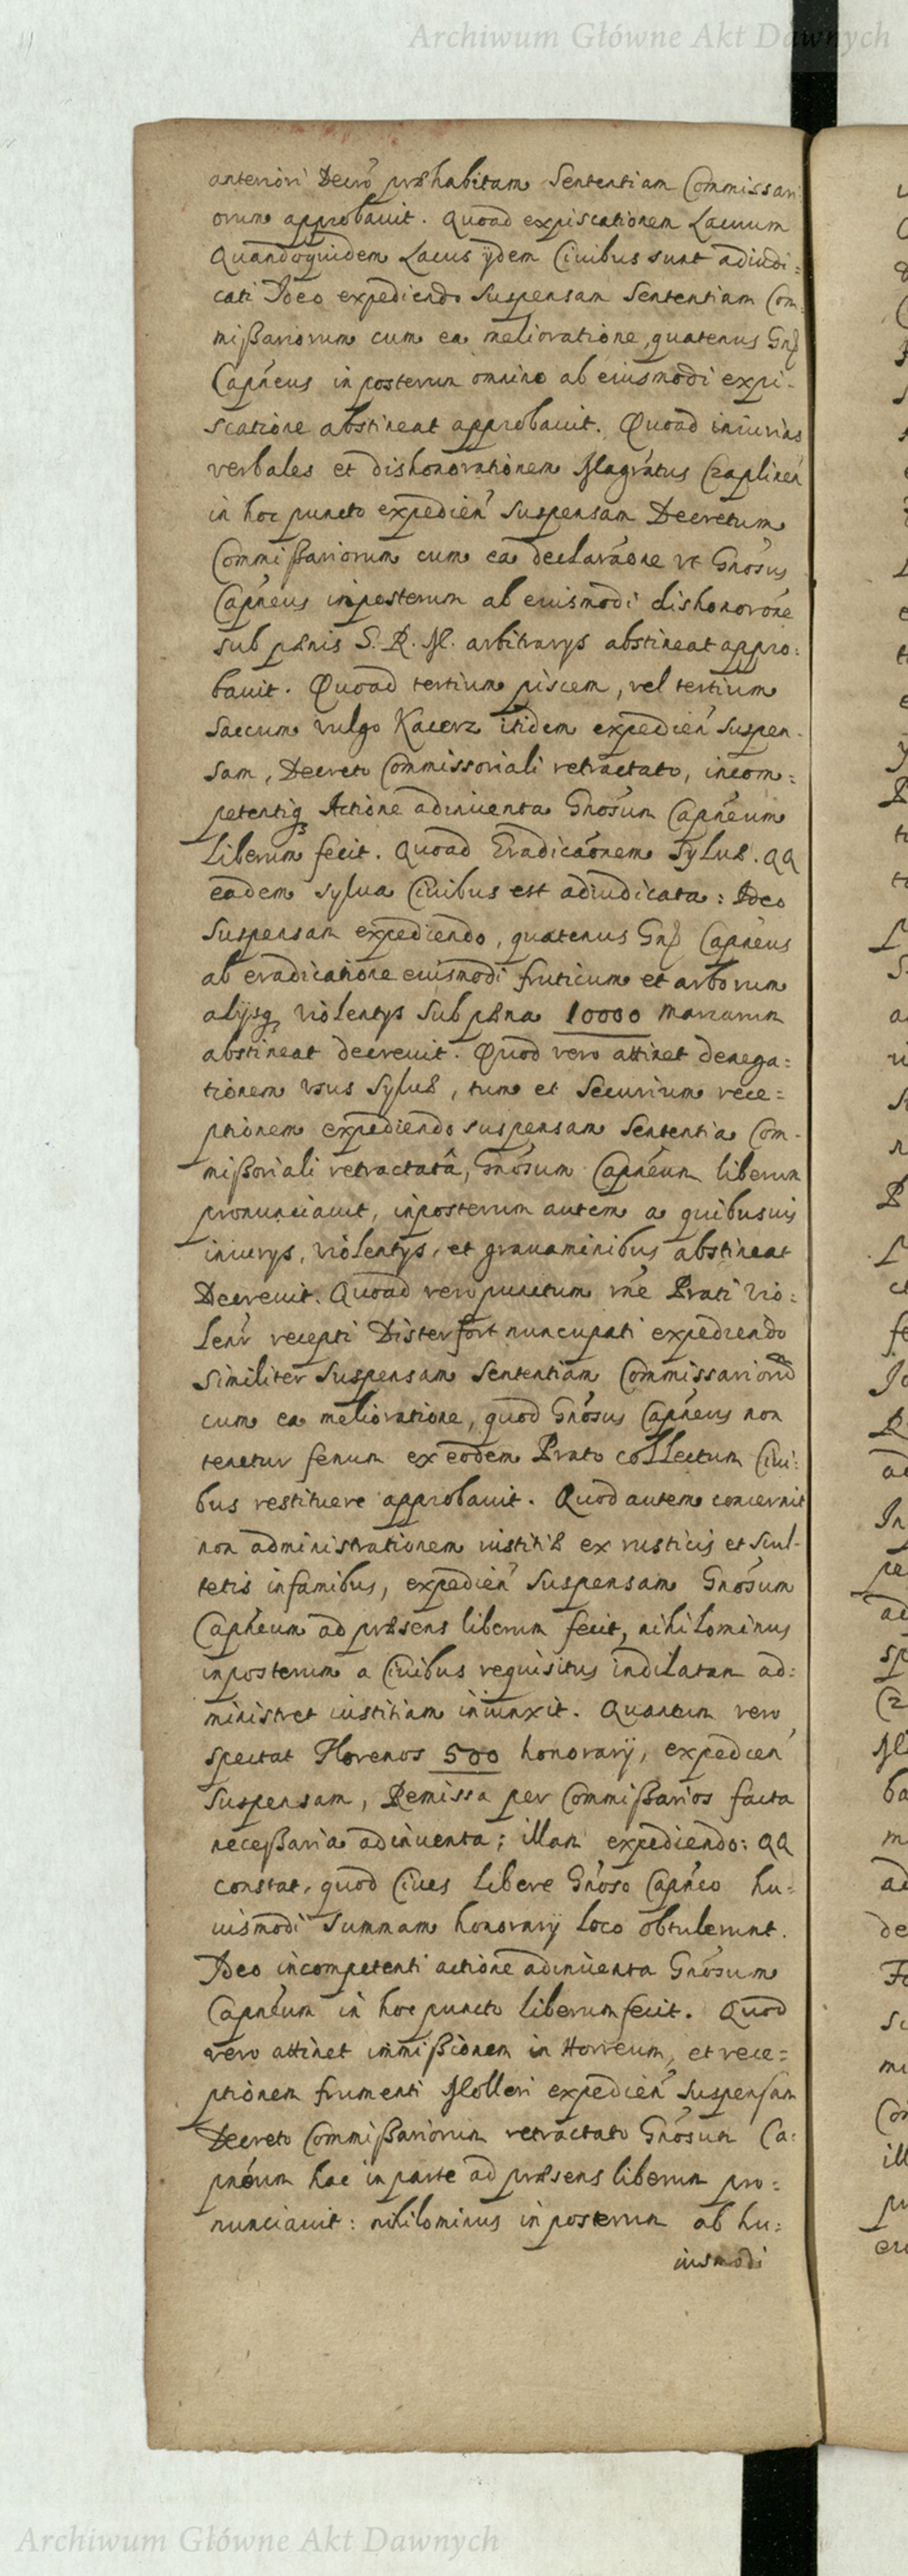 Archiwum Główne Akt Dawnych
anteriori Decrō præhabitam Sententiam Commissari
orum approbauit. Quoad expiscationem Lacuum
Quandoquidem Lacus ÿdem Ciuibus sunt adiudi:
cati Ideo expediendo suspensam Sententiam Com-
mißariorum cum ea melioratione, quatenus Gnſ
Capneus in posterum omnino ab eiusmodi expi-
scatione abstineat approbauit. Quoad iniurias
verbales et dishonorationem Magrātus Czaplineń
in hoc puncto expedień Suspensam Decretum
Commißariorum cum ea declaraōne vt Gnōsus
Capneus inposterum ab eiusmodi dishonorōne
sub pænis S. R. M. arbitrarys abstineat appro:
bauit. Quoad tertium piscem, vel tertium
Saccum vulgo Kacerz itidem expedień Suspen-
sam, Decreto Commissoriali retractato, incom:
petentiq Actione adinuenta Gnōsum Capnēum
Liberum fecit. Quoad Eradicaōnem Syluæ. QQ
eadem sylua Ciuibus est adiudicata: Ideo
Suspensam expediendo, quatenus Gnſ Capneus
ab eradicatione eiusmodi fruticum et arborum
alÿsq violentys sub pæna 10000 marcarum
abstineat decreuit. Quod vero attinet denega:
tionem vsus Syluæ, tum et Securium rece=
ptionem expediendo suspensam Sententia Com-
mißoriali retractatâ, Gnōsum Capnēum liberum
pronunciauit, inposterum autem a quibusuis
iniurys, violentys, et grauaminibus abstineat
Decreuit. Quoad vero punctum rnē Prati vio:
lenr recepti Disterfort nuncupati expediendo
Similiter Suspensam Sententiam Commissariorū
cum ea melioratione, quod Gnōsus Capneus non
tenetur fenum ex eodem Prato collectum Ciui:
bus restituere approbauit. Quod autem concernit
non administrationem iustitiæ ex rusticis et Scul-
tetis infamibus, expedień Suspensam Gnōsum
Capneum ad præsens liberum fecit, nihilominus
inposterum a Ciuibus requisitus indilatam ad:
ministret iustitiam iniunxit. Quantum vero
spectat Florenos 500 honorarÿ, expedień
Suspensam, Remissa per Commißarios facta
neceßaria adinuenta; illam expediendo: QQ
constat, quod Ciues libere Gnōso Capnēo hu:
iusmodi Summam honorarÿ loco obtulerunt.
Ideo incompetenti actione adinuenta Gnōsum
Capnēum in hoc puncto liberum fecit. Quod
vero attinet immißionem in Horreum, et rece=
ptionem frumenti Molleri expedień Suspensam
Decreto Commißariorum retractato Gnōsum Ca:
pnēum hac in parte ad præsens liberum pro:
nunciauit: nihilominus in posterum ab hu:
iusmodi
Archiwum Główne Akt Dawnych